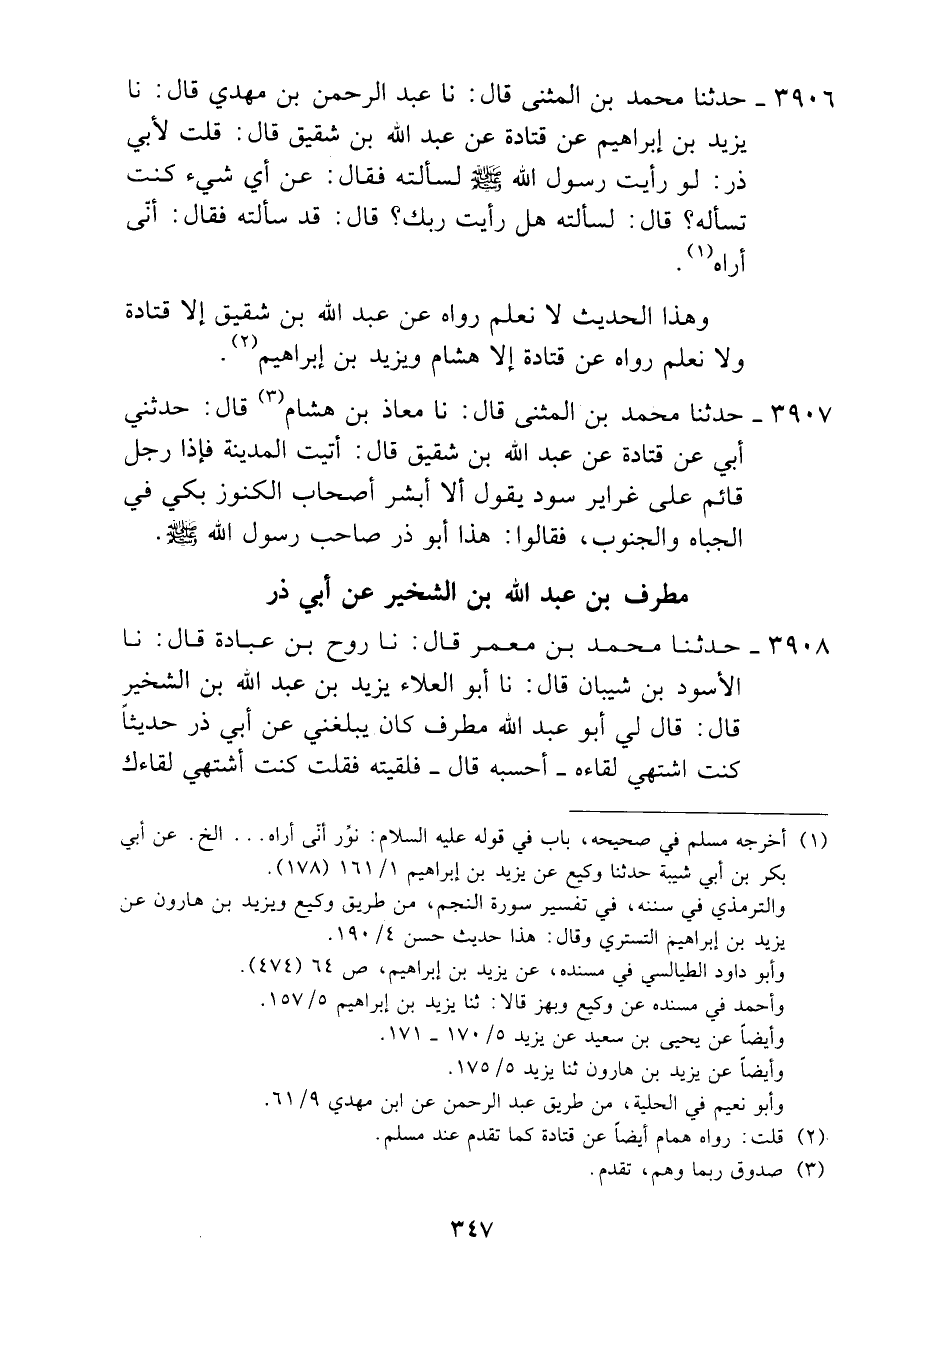 ٣٩٠٦ ـ حدثنا محمد بن المثنى قال: نا عبد الرحمن بن مهدي قال: نا
يزيد بن إبراهيم عن قتادة عن عبد الله بن شقيق قال: قلت لأبي
ذر: لو رأيت رسول الله ﷺ لسألته فقال: عن أي شيء كنت
تسأله؟ قال: لسألته هل رأيت ربك؟ قال: قد سألته فقال: أنّى
أراه(١).
وهذا الحديث لا نعلم رواه عن عبد الله بن شقيق إلا قتادة
ولا نعلم رواه عن قتادة إلا هشام ويزيد بن إبراهيم(٢).
٣٩٠٧ ـ حدثنا محمد بن المثنى قال: نا معاذ بن هشام(٣) قال: حدثني
أبي عن قتادة عن عبد الله بن شقيق قال: أتيت المدينة فإذا رجل
قائم على غراير سود يقول ألا أبشر أصحاب الكنوز بكي في
الجباه والجنوب، فقالوا: هذا أبو ذر صاحب رسول الله ﷺ.
مطرف بن عبد الله بن الشخير عن أبي ذر
٣٩٠٨ ـ حدثنا محمد بن معمر قال: نا روح بن عبادة قال: نا
الأسود بن شيبان قال: نا أبو العلاء يزيد بن عبد الله بن الشخير
قال: قال لي أبو عبد الله مطرف كان يبلغني عن أبي ذر حديثاً
كنت اشتهي لقاءه ـ أحسبه قال ـ فلقيته فقلت كنت أشتهي لقاءك
(١) أخرجه مسلم في صحيحه، باب في قوله عليه السلام: نوْر أنّى أراه... الخ. عن أبي
بكر بن أبي شيبة حدثنا وكيع عن يزيد بن إبراهيم ١/ ١٦١ (١٧٨).
والترمذي في سننه، في تفسير سورة النجم، من طريق وكيع ويزيد بن هارون عن
يزيد بن إبراهيم التستري وقال: هذا حديث حسن ٤/ ١٩٠.
وأبو داود الطيالسي في مسنده، عن يزيد بن إبراهيم، ص ٦٤ (٤٧٤).
وأحمد في مسنده عن وكيع وبهز قالا: ثنا يزيد بن إبراهيم ٥/ ١٥٧.
وأيضاً عن يحيى بن سعيد عن يزيد ٥/ ١٧٠ ـ ١٧١.
وأيضاً عن يزيد بن هارون ثنا يزيد ٥/ ١٧٥.
وأبو نعيم في الحلية، من طريق عبد الرحمن عن ابن مهدي ٩/ ٦١.
(٢) قلت: رواه همام أيضاً عن قتادة كما تقدم عند مسلم.
(٣) صدوق ربما وهم، تقدم.
٣٤٧